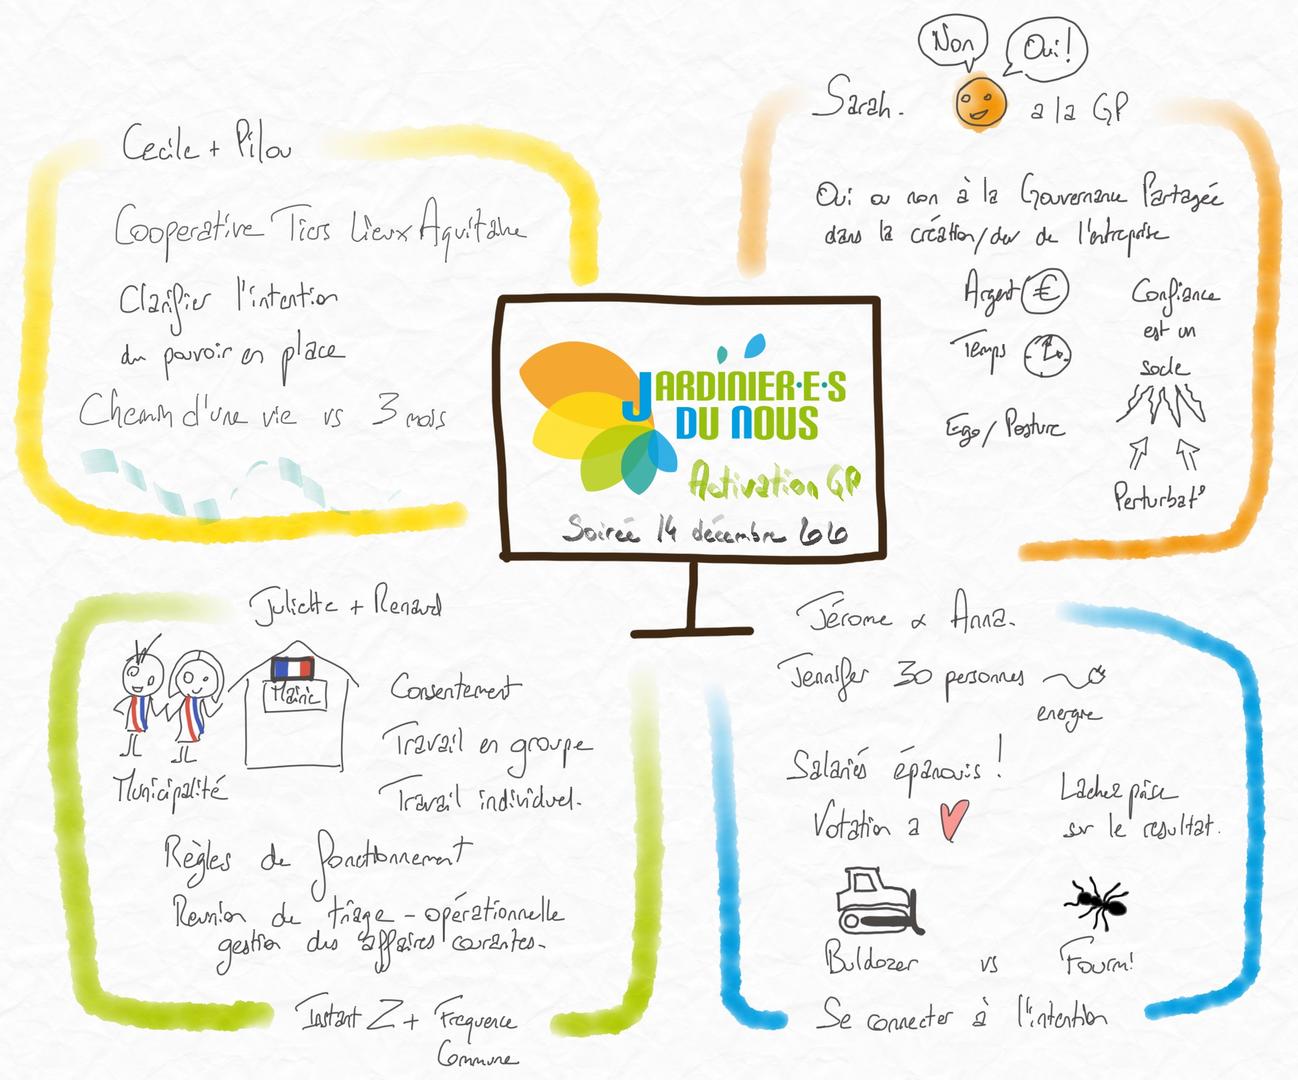 Cecile + Pilou
Cooperative Tiers Lieux Aquitaine
Clarifier l'intention
du pouvoir en place
Chemin d'une vie vs 3 mois
Non
Oui !
Sarah.
a la GP
Oui ou non à la Gouvernance Partagée
dans la création/dev de l'entreprise
Argent €
Temps
Ego / Posture
Confiance
est un
socle
Perturbat°
JARDINIER·E·S
DU NOUS
Activation GP
Soirée 14 décembre
Juliette + Renard
Mairie
Municipalité
Consentement
Travail en groupe
Travail individuel.
Règles de fonctionnement
Reunion de triage - opérationnelle
gestion des affaires courantes.
Instant Z + Frequence
Commune
Jérome & Anna.
Jennifer 30 personnes
energie
Salariés épanouis !
Votation a
Lachez prise
sur le resultat.
Buldozer vs Fourmi
Se connecter à l'intention